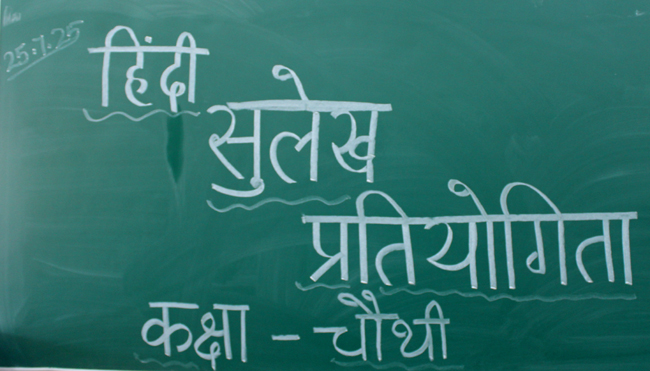 25.7.25
हिंदी
सुलेख
प्रतियोगिता
कक्षा - चौथी